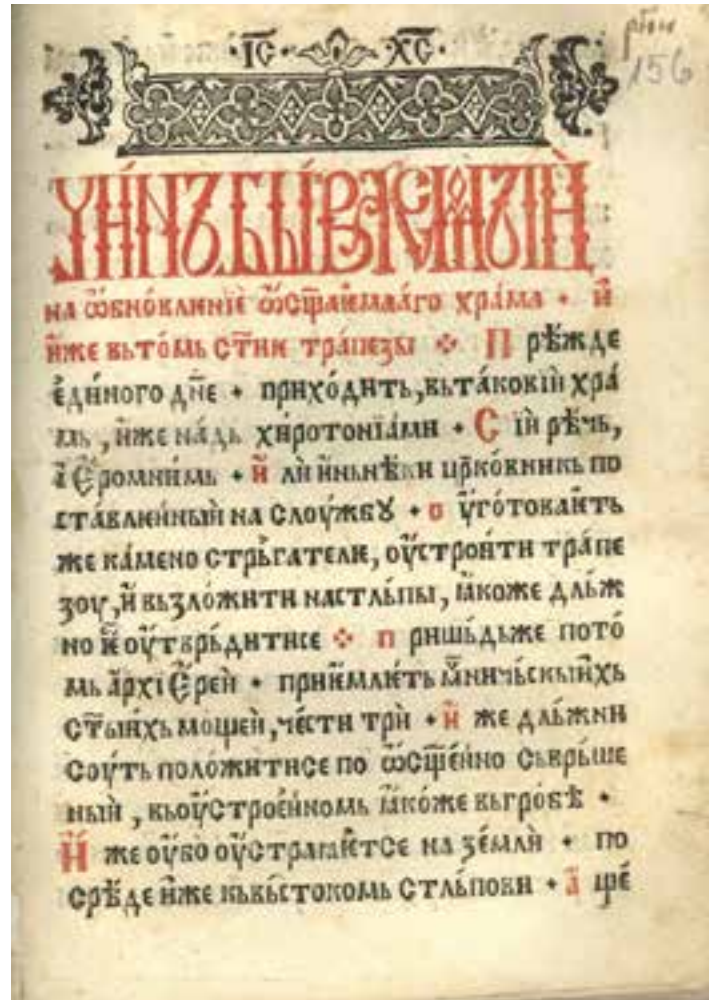 ·І҃С· ·Х҃С·
156
ЧИ́НЪ БЫ́ВАЕМЫЍ
на ѡ҆бновлиніе ѡ҆сщ҃аемааго храма · и҆
и҆же вьто́мь ст҃ѣи тра́пезы ⁘ П рѣжде
е҆ди́ного дн҃е · прихо́дить, вьта́ковіи хра́
мь, и҆же на́дь хи́ротоніами · С їи рѣчь,
и҆ли и҆нѣки цр҃ко́вникь по
ста́влиѥ́ный на слоу́жбꙋ · о у҆гото́ваѥть
же ка́мено стрьга́тели, оу҆строи́ти тра́пе
зоу, и҆ вьзло́жити настль́пы, ꙗ҆коже дль́ж
но ѥ҆ оу҆тврь́дитисе ⁘ п ришь́дьже пото́
мь а҆рхїе҆рей · прие́млѥть мч҃ничьскыи́хь
ст҃ыи́хь мощей, че́сти трѝ · и҆ же дль́жни
соуть поло́житисе по ѡ҆сщ҃е́нно сьврьше
ный, вьоу҆строе́нкомь ꙗ҆ко́же вьгро́бѣ ·
И҆ же оу҆бо оу҆страꙗѥ́тсе на зе́мли̂ · по
срѣ́де и҆же кьвь́стокомь стль́пови · а҆ ще́